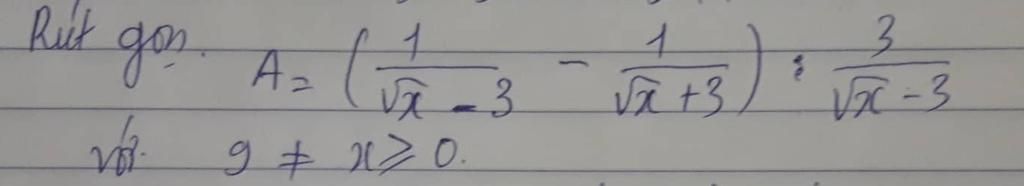 Rút gọn. A = (1/(√x - 3) - 1/(√x + 3)) : 3/(√x - 3)
với 9 ≠ x ≥ 0.